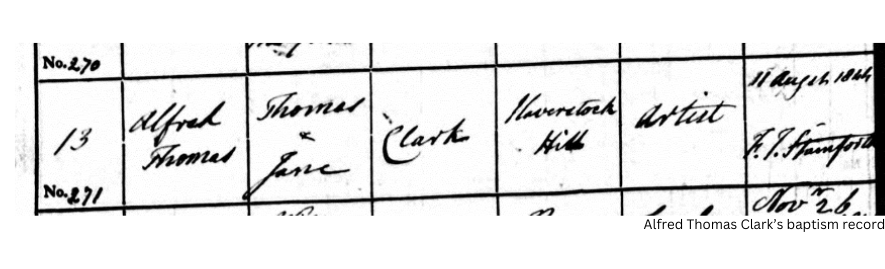 No. 270
13
Alfred
Thomas
Thomas
&
Jane
Clark
Haverstock
Hill
Artist
11 Augst. 1844
F. J. Stainforth
No. 271
Novr 26
Alfred Thomas Clark's baptism record